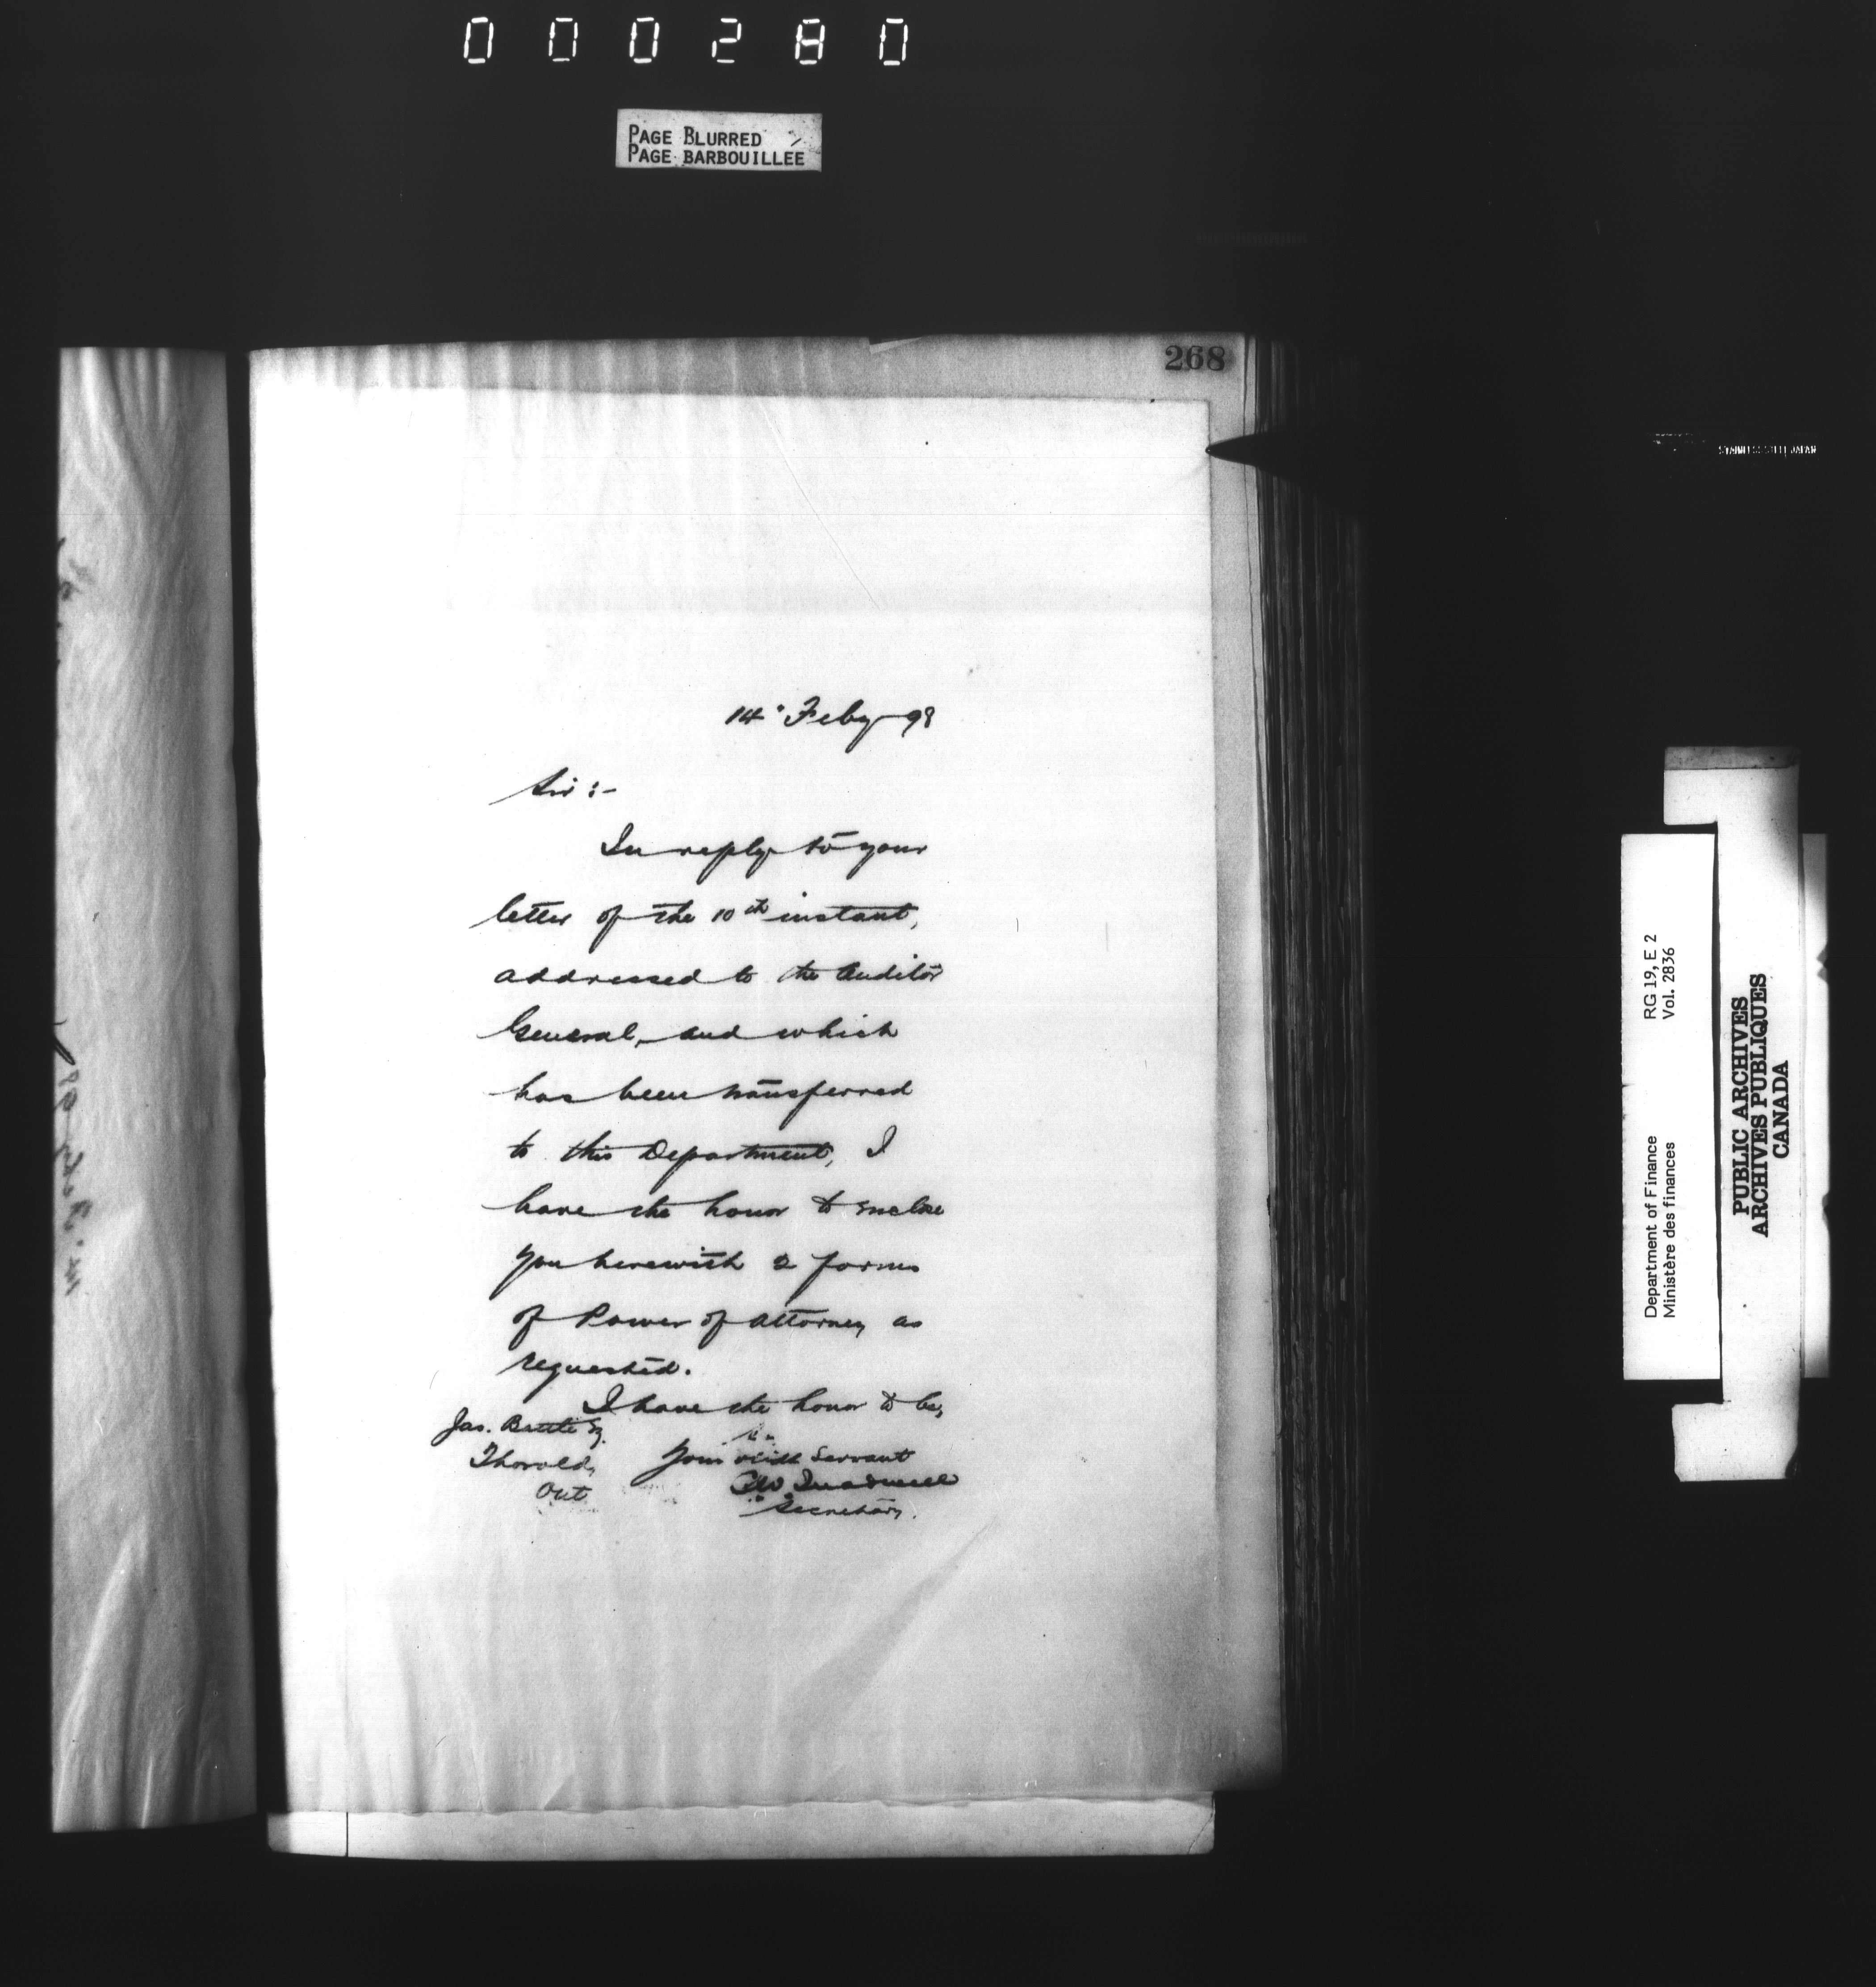 000280
PAGE BLURRED
PAGE BARBOUILLEE
268
14" Feby 98
Sir :-
In reply to your
letter of the 10th instant,
addressed to the Auditor
General, and which
has been transferred
to this Department, I
have the honor to enclose
you herewith 2 forms
of Power of attorney as
requested.
I have the honor to be,
Sir
Jas. Battle Esq.
Your obedt Servant
Thorold,
Ont
Secretary.
STAINLESS STEEL JAPAN
Department of Finance RG 19, E 2
Ministère des finances Vol. 2836
PUBLIC ARCHIVES
ARCHIVES PUBLIQUES
CANADA